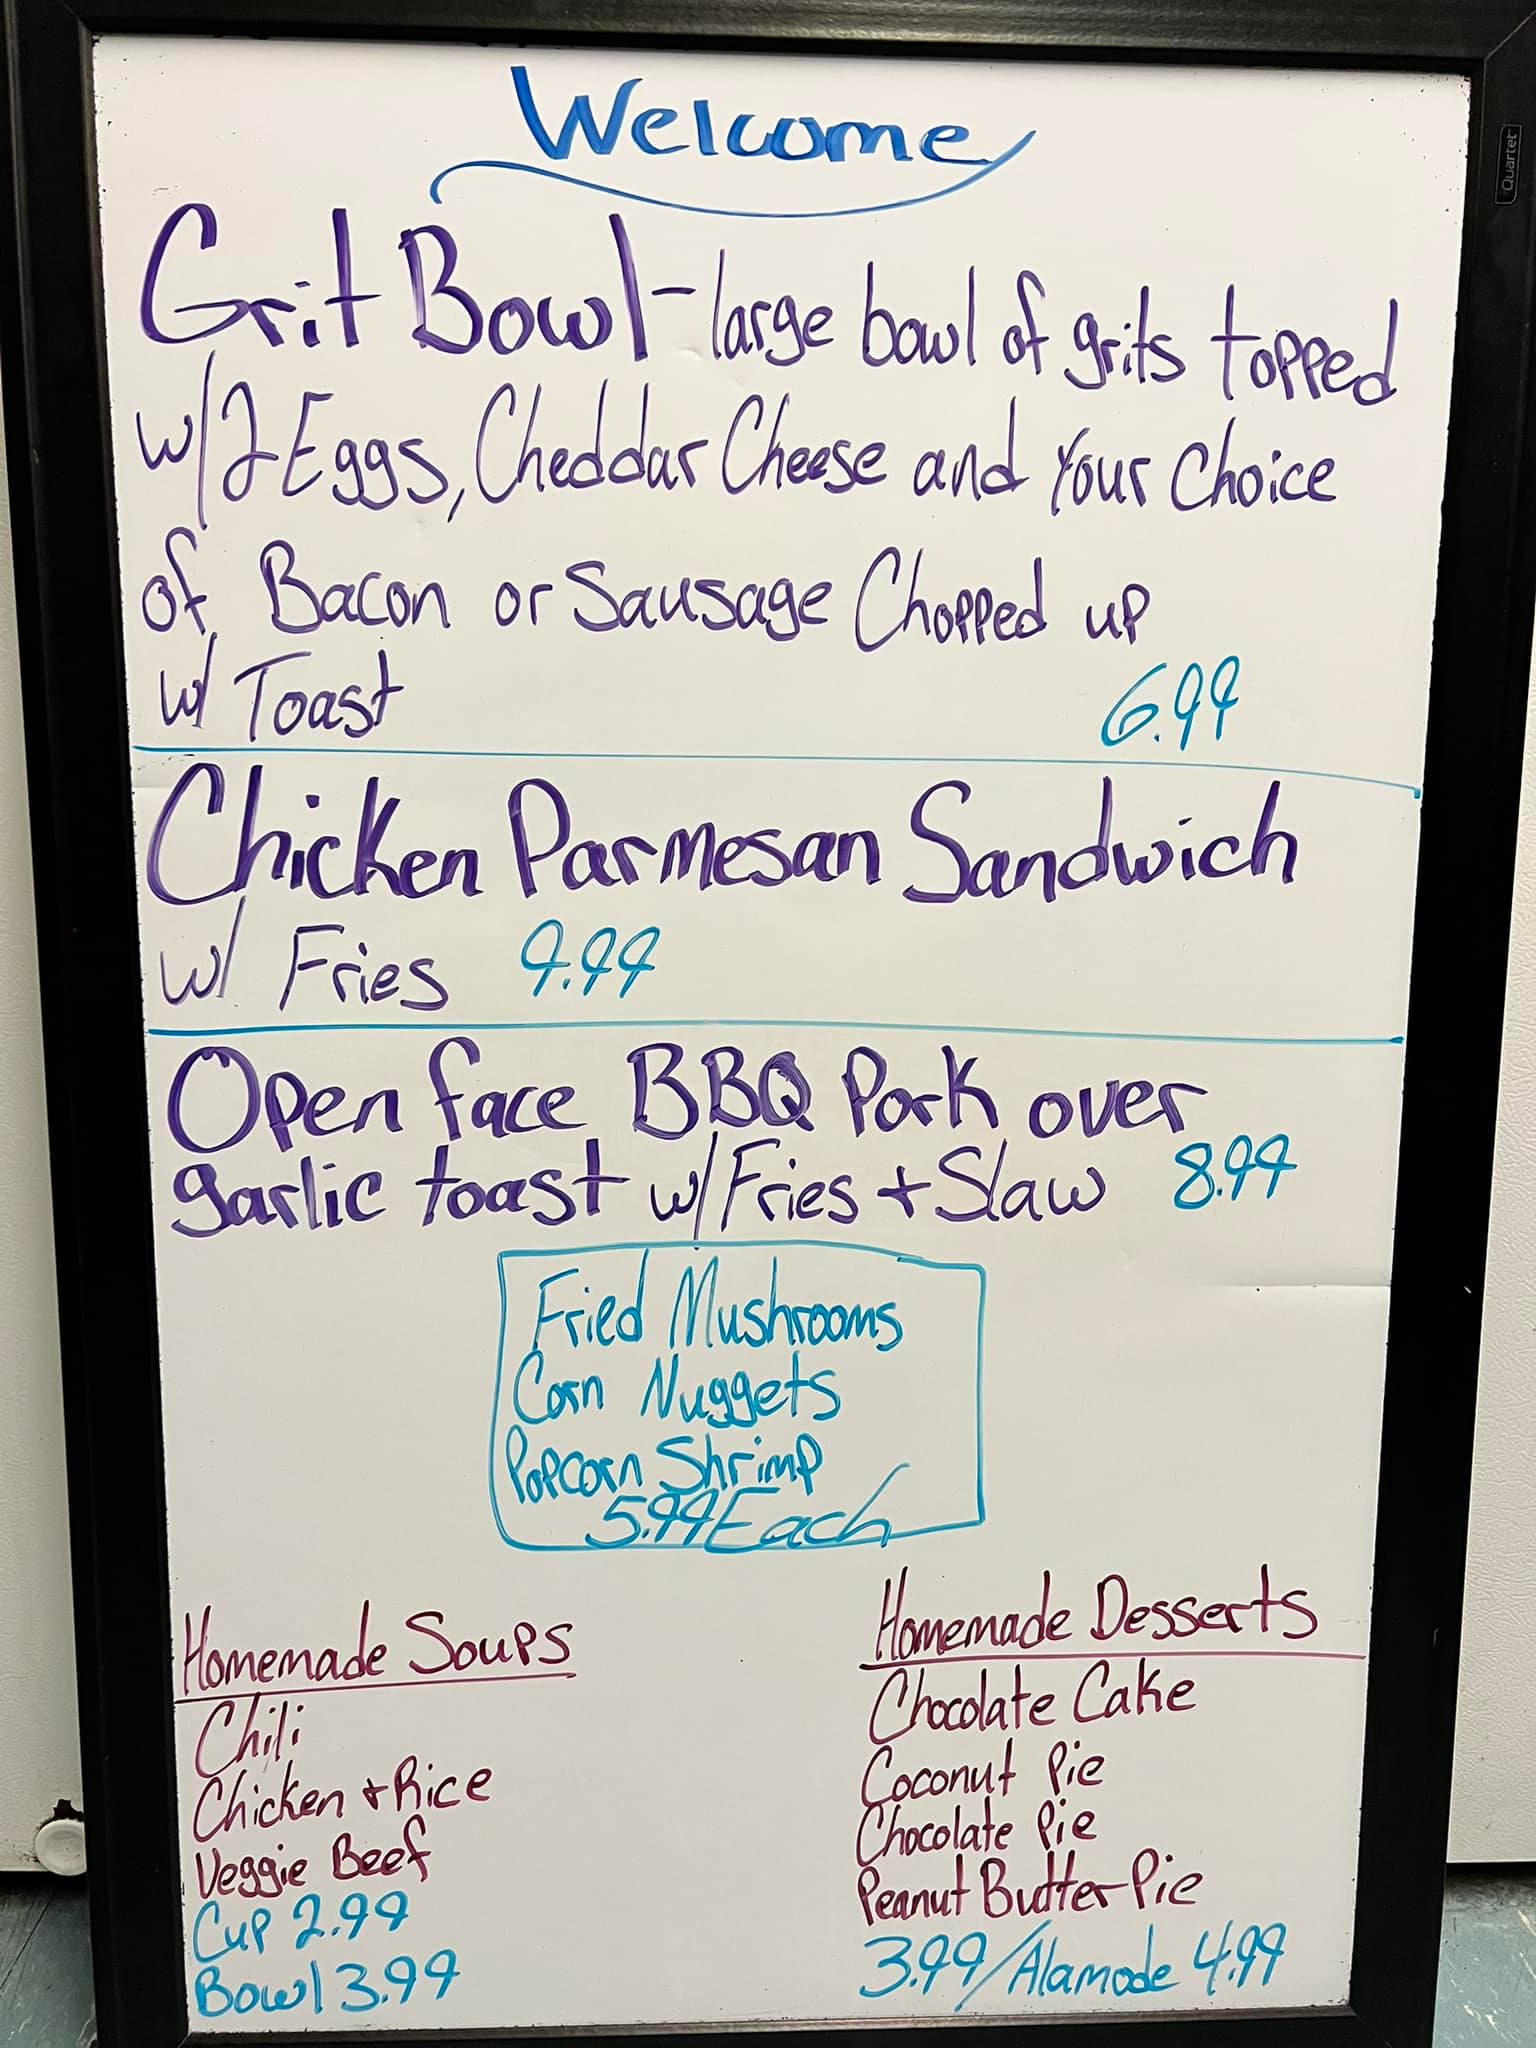 Welcome
Quartet
Grit Bowl - large bowl of grits topped
w/2 Eggs, Cheddar Cheese and Your Choice
of Bacon or Sausage Chopped up
w/ Toast 6.99
Chicken Parmesan Sandwich
w/ Fries 9.99
Open face BBQ Pork over
garlic toast w/Fries + Slaw 8.99
Fried Mushrooms
Corn Nuggets
Popcorn Shrimp
5.99 Each
Homemade Soups
Chili
Chicken + Rice
Veggie Beef
Cup 2.99
Bowl 3.99
Homemade Desserts
Chocolate Cake
Coconut Pie
Chocolate Pie
Peanut Butter Pie
3.99/Alamode 4.99